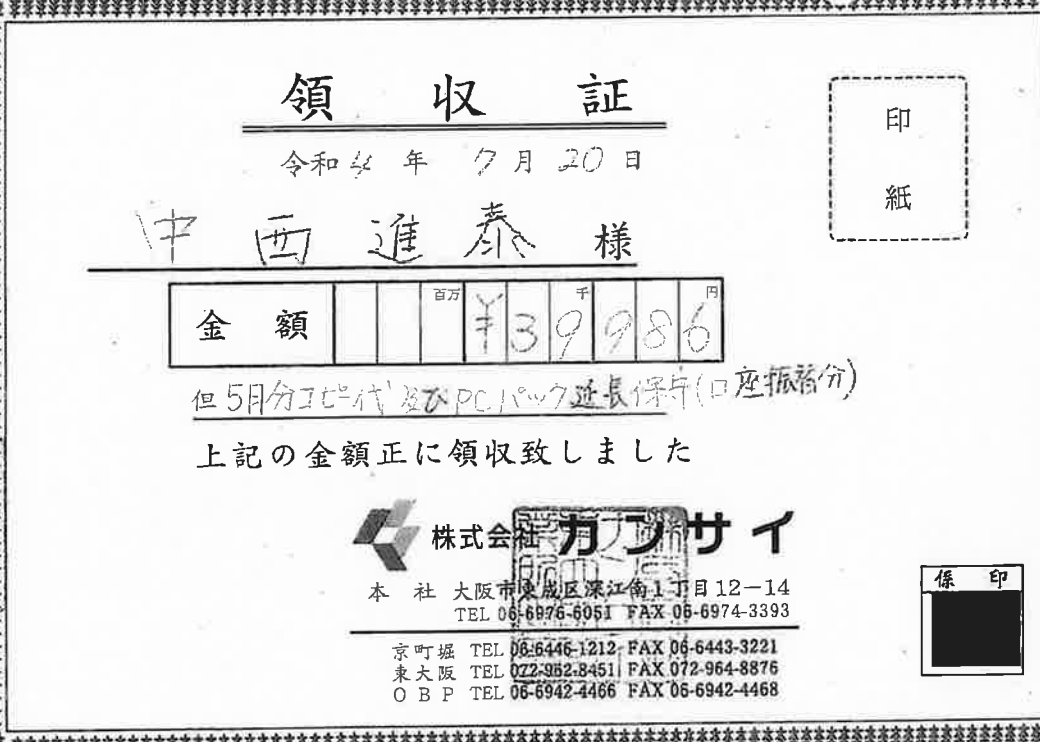 領収証
印紙
令和4年7月20日
中西進泰様
金額 百万 千 円 ¥39986
但5月分コピー代及びPCパック延長保守(口座振替分)
上記の金額正に領収致しました
株式会社カンサイ
本社 大阪市東成区深江南1丁目12-14
TEL 06-6976-6051 FAX 06-6974-3393
係印
京町堀 TEL 06-6446-1212 FAX 06-6443-3221
東大阪 TEL 072-962-8451 FAX 072-964-8876
OBP TEL 06-6942-4466 FAX 06-6942-4468